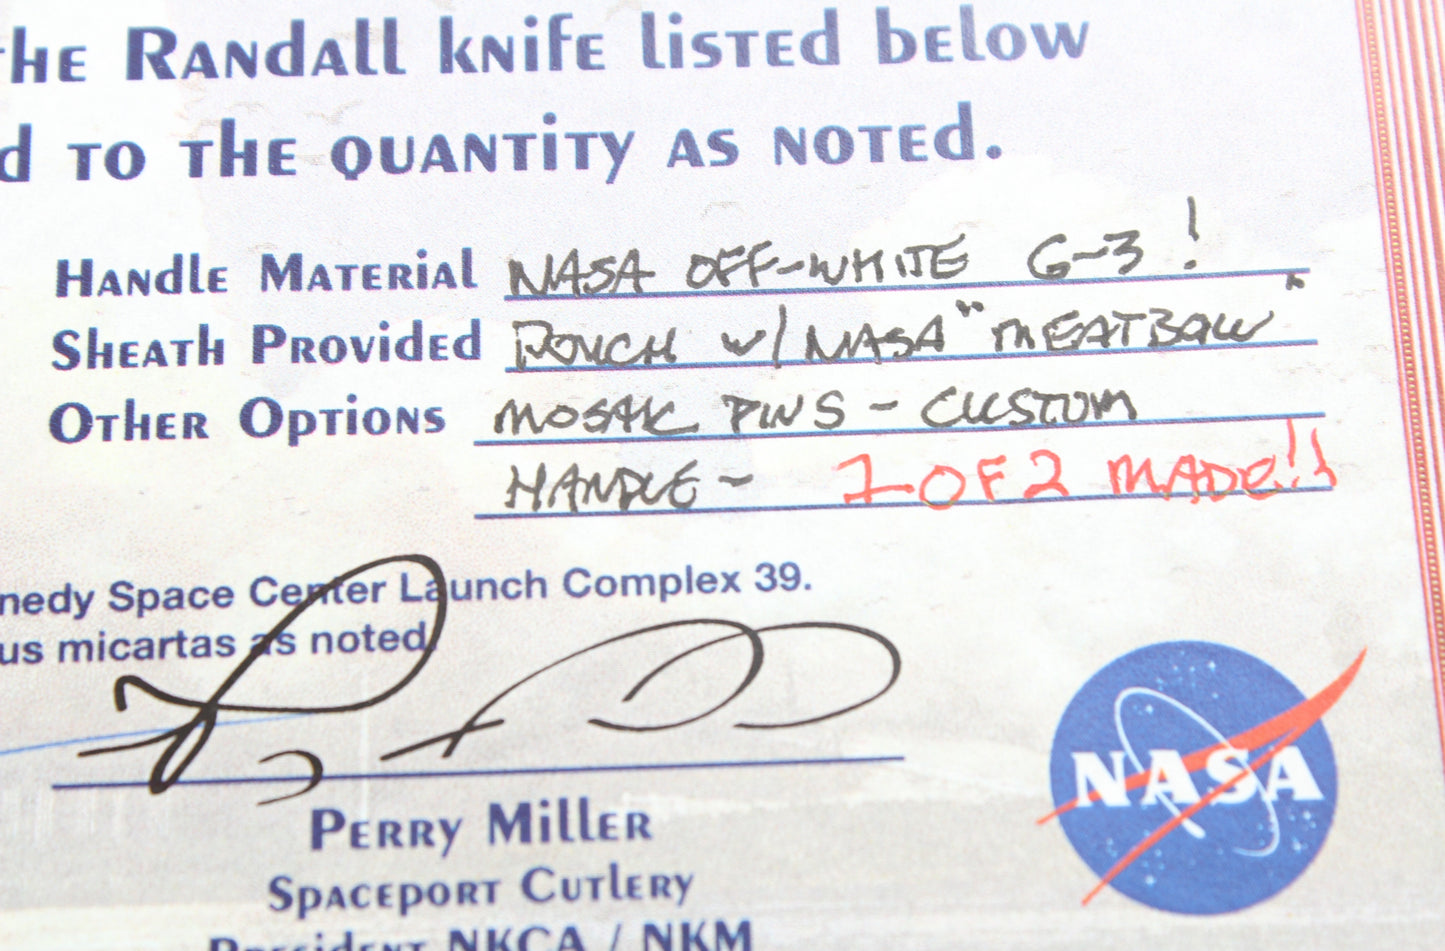 the Randall knife listed below
d to the quantity as noted.
Handle Material NASA OFF-WHITE G-3!
Sheath Provided POUCH w/ NASA "MEATBALL"
Other Options MOSAIC PINS - CUSTOM
HANDLE - 1 OF 2 MADE!!
nedy Space Center Launch Complex 39.
us micartas as noted
Perry Miller
Spaceport Cutlery
President NKCA / NKM
NASA